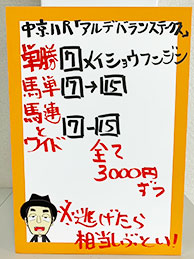 中京11R「アルデバランステークス」
単勝 7 メイショウフンジン
馬単 7→15
馬連とワイド 7-15
全て3000円ずつ
※逃げたら
相当しぶとい!